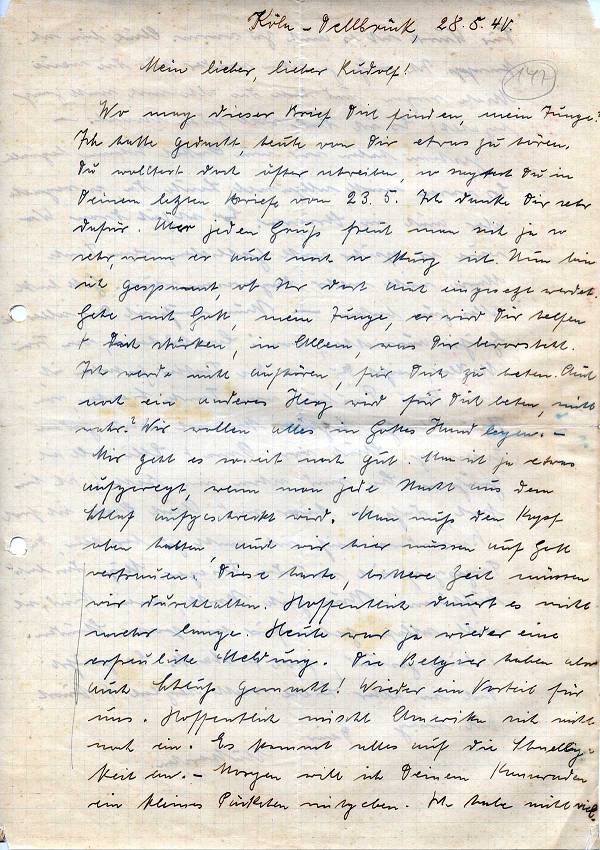 Köln - Dellbrück, 28.5.40.
147
Mein lieber, lieber Rudolf!
Wo mag dieser Brief Dich finden, mein Junge?
Ich hatte gedacht, heute von Dir etwas zu hören.
Du wolltest doch öfter schreiben, so sagtest Du in
Deinem letzten Briefe vom 23.5. Ich danke Dir sehr
dafür. Über jeden Gruß freut man sich ja so
sehr, wenn er auch noch so kurz ist. Nun bin
ich gespannt, ob Ihr dort auch eingesetzt werdet.
Gehe mit Gott, mein Junge, er wird Dir helfen
+ Dich stärken, in Allem, was Dir bevorsteht.
Ich werde nicht aufhören, für Dich zu beten. Auch
noch ein anderes Herz wird für Dich beten, nicht
wahr? Wir wollen alles in Gottes Hand legen. -
Mir geht es soweit noch gut. Man ist ja etwas
aufgeregt, wenn man jede Nacht aus dem
Schlaf aufgeschreckt wird. Man muß den Kopf
oben halten, und wir hier müssen auf Gott
vertrauen. Diese harte, bittere Zeit müssen
wir durchhalten. Hoffentlich dauert es nicht
mehr lange. Heute war ja wieder eine
erfreuliche Meldung. Die Belgier haben also
auch Schluß gemacht! Wieder ein Vorteil für
uns. Hoffentlich mischt Amerika sich nicht
noch ein. Es kommt alles auf die Schnellig-
keit an. - Morgen will ich Deinem Kameraden
ein kleines Päckchen mitgeben. Ich habe nicht viel.